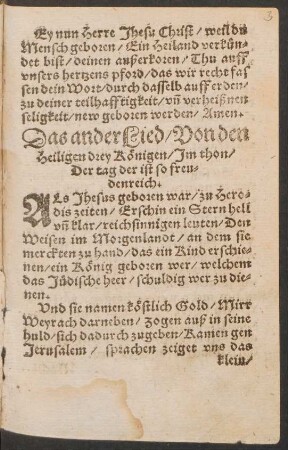 3
Ey nun Herre Jhesu Christ / weil du
Mensch geboren / Ein Heiland verkün-
det bist / deinen außerkoren / Thu auff
vnsers hertzens pford / das wir recht fas
sen dein Wort / durch dasselb auff erden /
zu deiner teilhafftigkeit / vn̄ verheißnen
seligkeit / new geboren werden / Amen.
Das ander Lied / Von den
Heiligen drey Königen / Im thon /
Der tag der ist so freu-
denreich.
ALs Jhesus geboren war / zu Hero-
dis zeiten / Erschin ein Stern hell
vn̄ klar / reichsinnigen leuten / Den
Weisen im Morgenlandt / an dem sie
merckten zu hand / das ein Kind erschie-
nen / ein König geboren wer / welchem
das Jüdische heer / schuldig wer zu die-
nen.
Vnd sie namen köstlich Gold / Mirr
Weyrach darneben / Zogen auß in seine
huld / sich dadurch zugeben / Kamen gen
Jerusalem / sprachen zeiget vns das
klein /